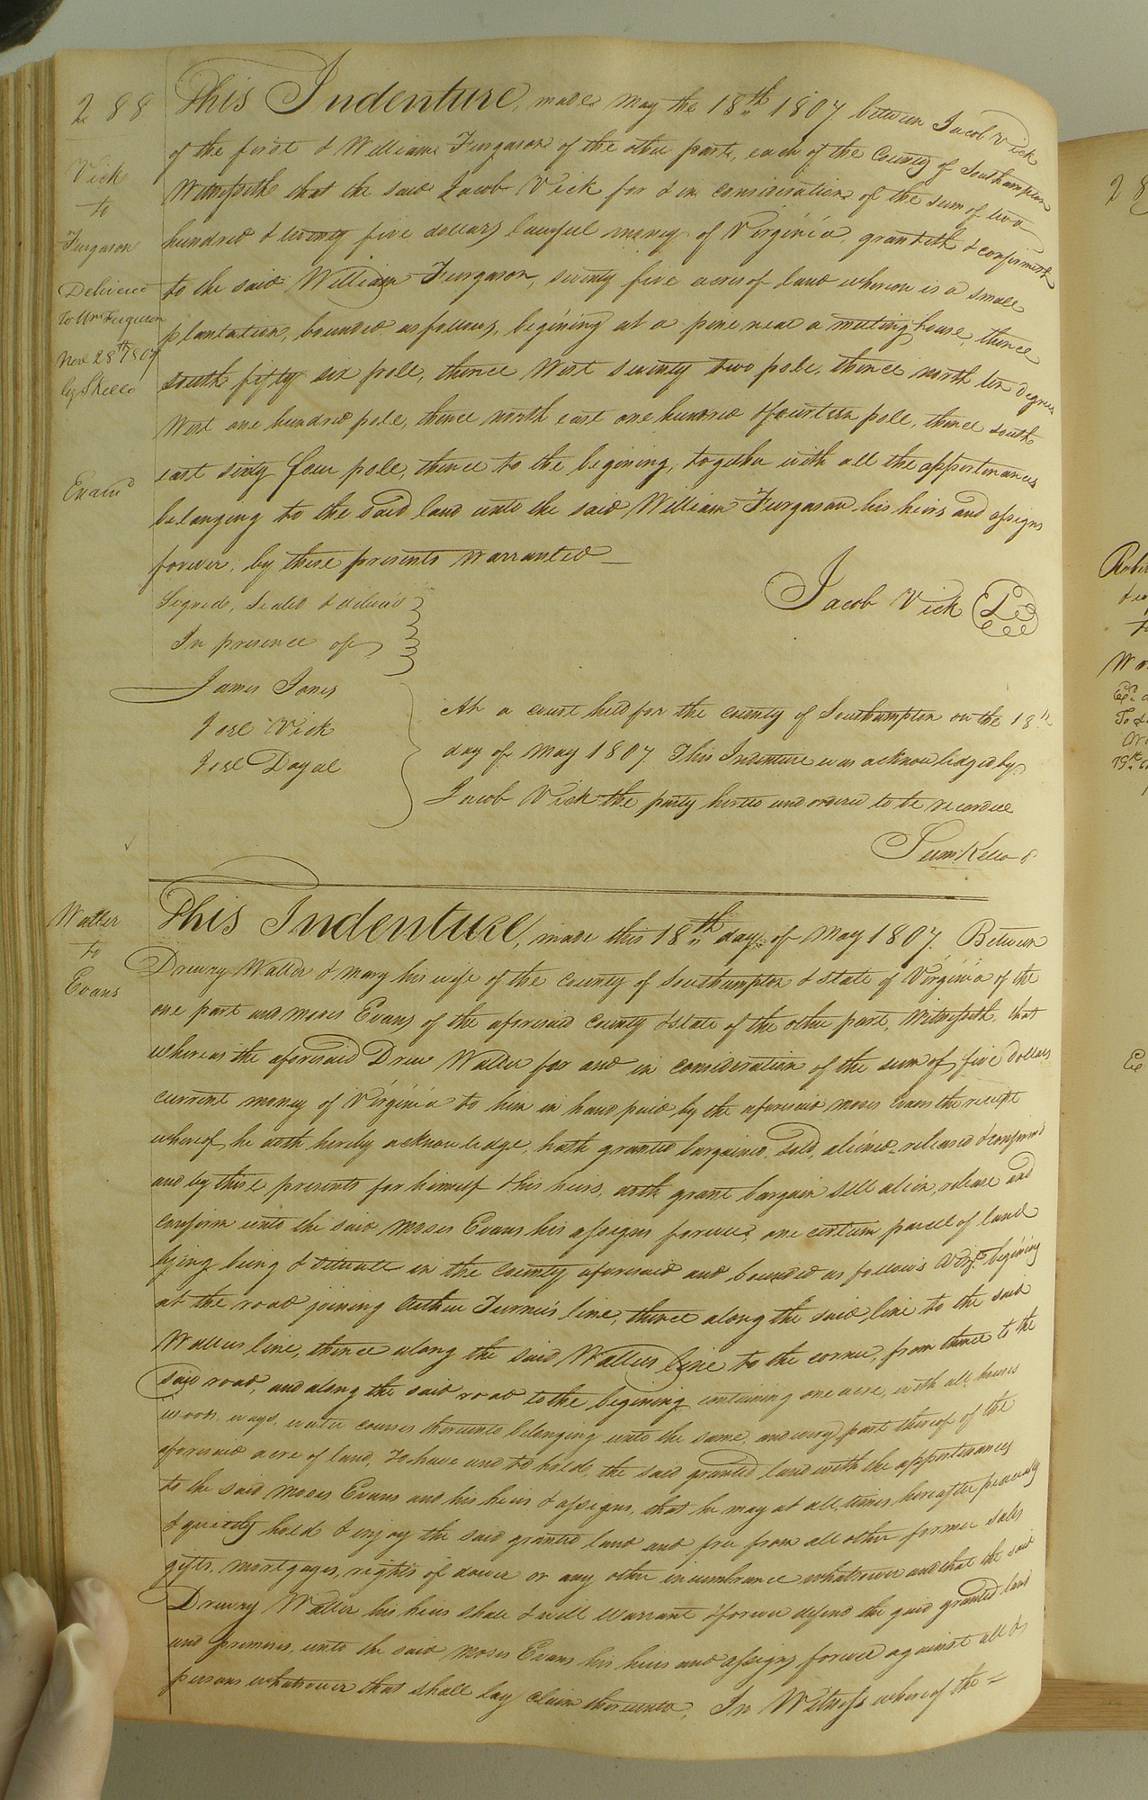 288
This Indenture, made May the 18th 1807 between Jacob Vick
of the first & William Furgason of the other part, each of the County of Southampton
Witnesseth that the said Jacob Vick for & in consideration of the sum of two
hundred & twenty five dollars lawful money of Virginia, granteth & confirmeth
to the said William Furgason, seventy five acres of land whereon is a small
plantation, bounded as follows, begining at a pine near a meeting house, thence
South fifty six pole, thence West seventy two pole, thence north ten degrees
West one hundred pole, thence north east one hundred & fourteen pole, thence south
east sixty four pole, thence to the begining, together with all the appertinances
belonging to the said land unto the said William Furgason his heirs and assigns
forever, by these presents warranted
Vick
to
Furgason
Delivered
To Wm Furguson
Nov 28th 1807
by S Kello
Examd
Jacob Vick
Signed, Sealed & deliverd
In presence of
James Jones
Joel Vick
Jesse
At a court held for the county of Southampton on the 18th
day of May 1807 This Indenture was acknowledged by
Jacob Vick the party hereto and ordered to be recorded
Saml Kello
Waller
to
Evans
This Indenture, made this 18th day of May 1807. Between
Drewry Waller & Mary his wife of the county of Southampton & State of Virginia of the
one part and Moses Evans of the aforesaid County & State of the other part, Witnesseth, that
whereas the aforesaid Drew Waller for and in consideration of the sum of five dollars
current money of Virginia to him in hand paid by the aforesaid Moses Evans the receipt
whereof he doth hereby acknowledge, hath granted bargained, sold, aliened, released & confirmed
and by these presents for himself & his heirs, doth grant bargain sell alien, release and
confirm unto the said Moses Evans his assigns forever, one certain parcel of land
lying being & situate in the county aforesaid and bounded as follows begining
at the road joining Arthur Turner's line, thence along the said line to the said
Wallers line, thence along the said Wallers line to the corner, from thence to the
said road, and along the said road to the begining containing one acre, with all houses
woods, ways, water courses thereunto belonging unto the same, and every part thereof of the
aforesaid acre of land, To have and to hold, the said granted land with the appertinances
to the said Moses Evans and his heirs & assigns, that he may at all times hereafter peaceably
& quietly hold & enjoy the said granted land and free from all other former sales
gifts, mortgages, rights of dower or any other incumbrance whatsoever and that the said
Drewry Waller his heirs shall & will warrant & forever defend the said granted land
and premises, unto the said Moses Evans his heirs and assigns forever against all &
persons whatsoever that shall lay claim thereunto, In Witness whereof the